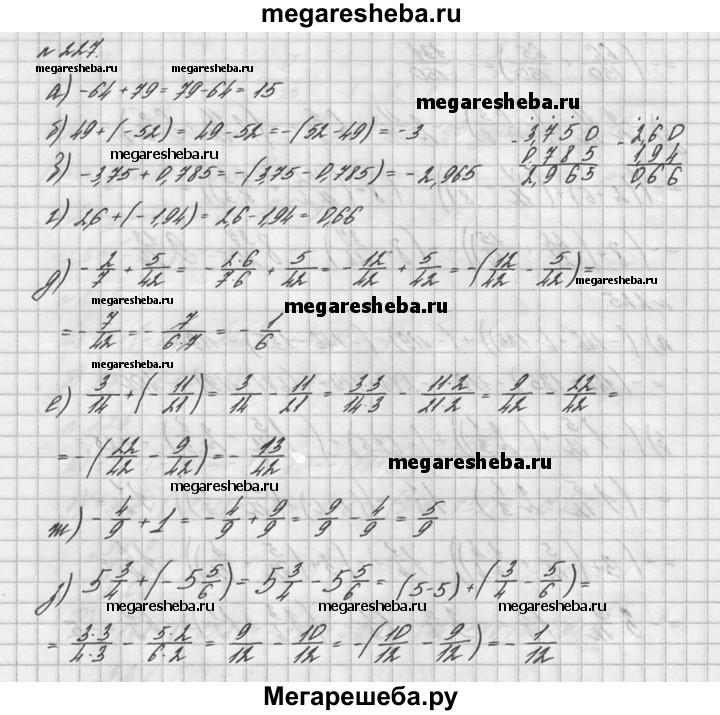 megaresheba.ru
№ 227.
megaresheba.ru
а) -64 + 79 = 79-64 = 15
megaresheba.ru
б) 49 + (-52) = 49 - 52 = -(52 - 49) = -3
megaresheba.ru
в) -3,75 + 0,785 = -(3,75 - 0,785) = -2,965
- 3,750
0,785
2,965
- 2,60
1,94
0,66
г) 2,6 + (-1,94) = 2,6 - 1,94 = 0,66
д) -2/7 + 5/42 = -2·6/7·6 + 5/42 = -12/42 + 5/42 = -(12/42 - 5/42) =
megaresheba.ru
megaresheba.ru
megaresheba.ru
= -7/42 = -7/6·7 = -1/6
megaresheba.ru
е) 3/14 + (-11/21) = 3/14 - 11/21 = 3·3/14·3 - 11·2/21·2 = 9/42 - 22/42 =
= -(22/42 - 9/42) = -13/42
megaresheba.ru
megaresheba.ru
ж) -4/9 + 1 = -4/9 + 9/9 = 9/9 - 4/9 = 5/9
з) 5 3/4 + (-5 5/6) = 5 3/4 - 5 5/6 = (5-5) + (3/4 - 5/6) =
megaresheba.ru megaresheba.ru megaresheba.ru
= 3·3/4·3 - 5·2/6·2 = 9/12 - 10/12 = -(10/12 - 9/12) = -1/12
Мегарешеба.ру